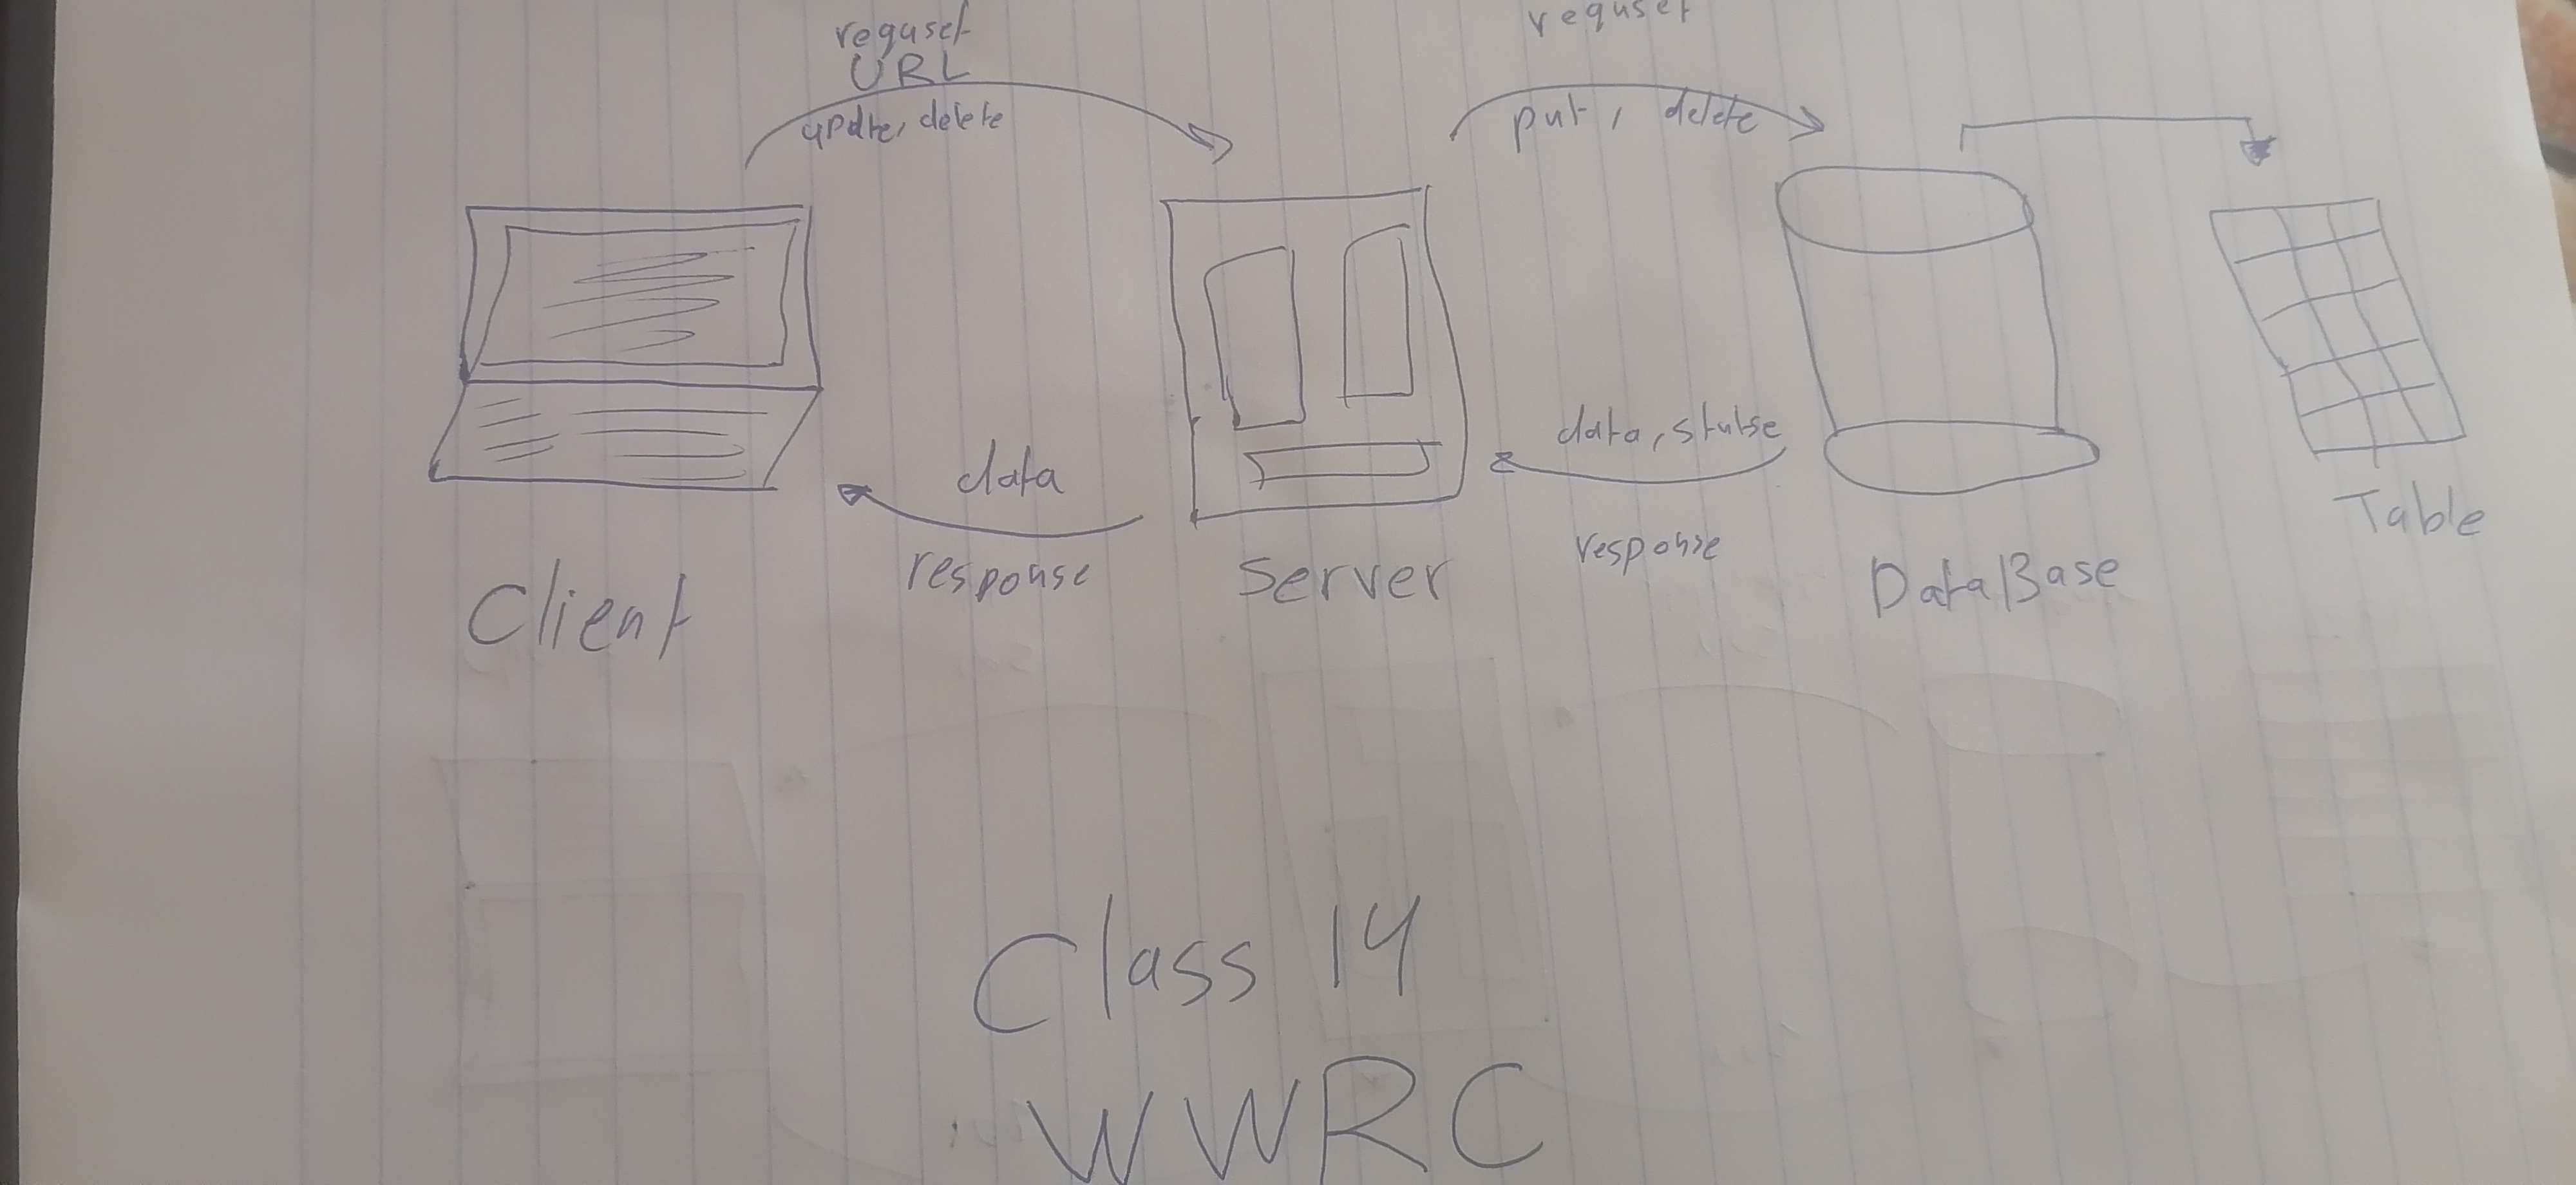 requset
URL
updte, delete
requset
put, delete
data
response
data, statse
response
Client
Server
DataBase
Table
Class 14
WWRC